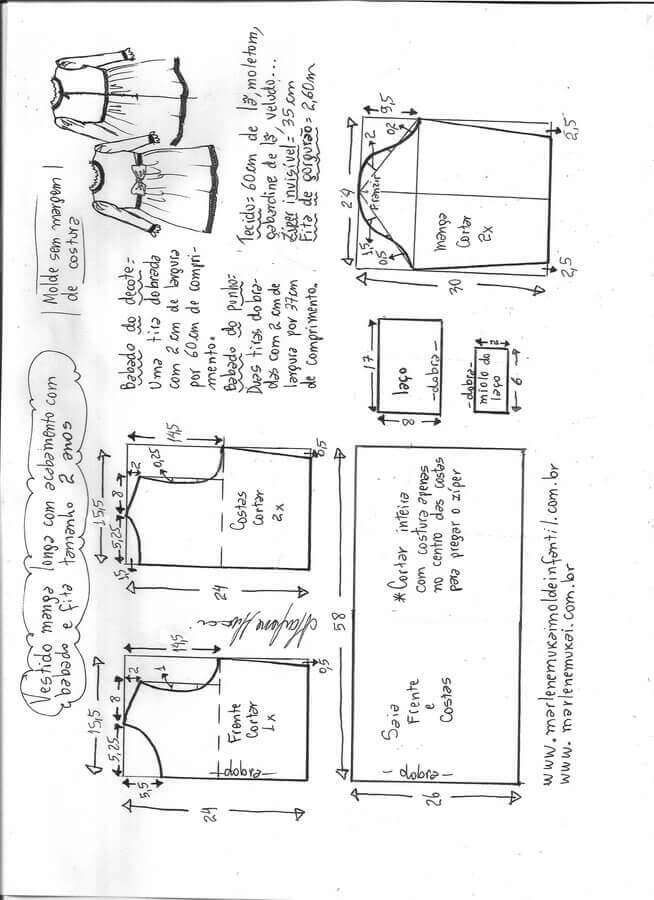 Vestido manga longa com acabamento com
babado e fita tamanho 2 anos
Molde sem margem
de costura
Babado do decote=
Uma tira dobrada
com 2 cm de largura
por 60 cm de compri-
mento.
Babado do punho:
Duas tiras dobra-
das com 2 cm de
largura por 37cm
de comprimento.
Tecido= 60cm de lã, moletom,
gabardine de lã, veludo...
Ziper invisível= 35 cm
Fita de gorgurão = 2,60m
15,5
5,25
8
2
5,5
1
14,5
Frente
Cortar
1x
-dobra-
24
0,5
15,5
5,25
8
2
1,5
0,25
14,5
Costas
Cortar
2x
24
0,5
9,5
0,2
2
Franzir
1,5
0,5
29
manga
Cortar
2x
30
2,5
2,5
17
laço
-dobra-
8
-dobra-
miolo do
laço
2
6
58
Saia
Frente
e
Costas
-dobra-
*Cortar inteira
com costura apenas
no centro das costas
para pregar o zíper
26
www.marlenemukaimoldeinfantil.com.br
www.marlenemukai.com.br